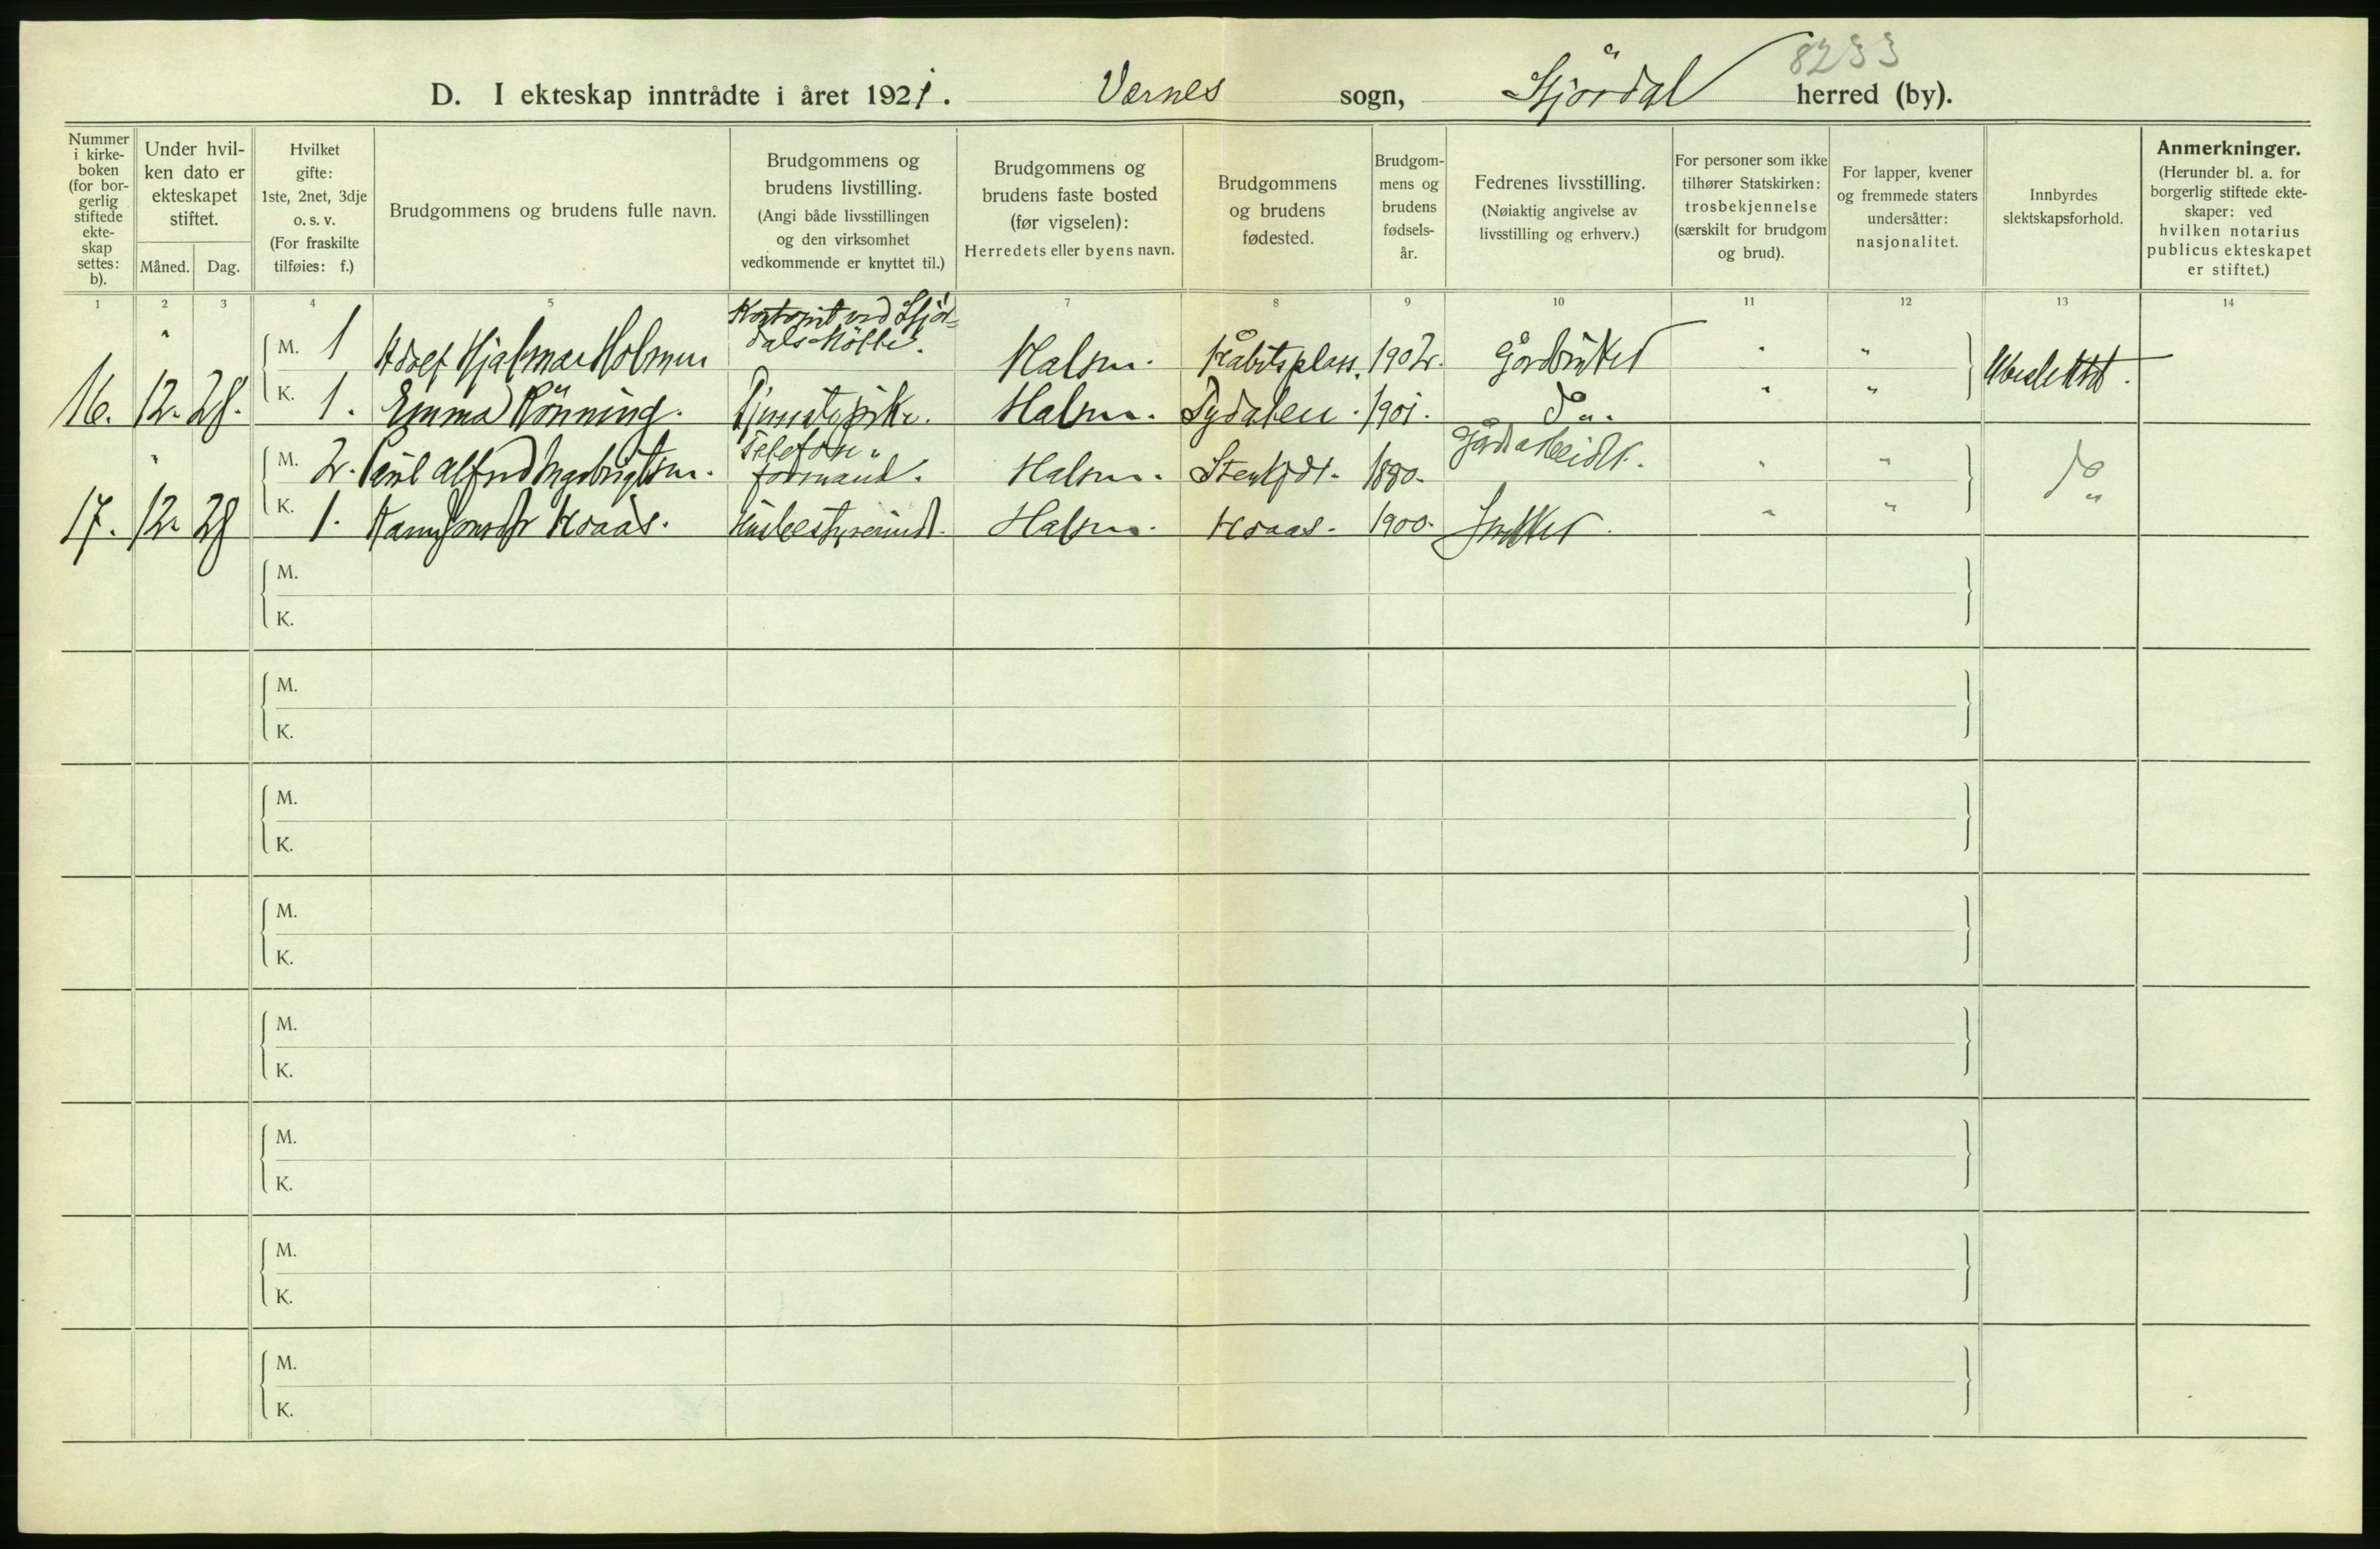 8233
D. I ekteskap inntrådte i året 1921. Værnes sogn, Stjørdal herred (by).
Nummer
i kirke-
boken
(for bor-
gerlig
stiftede
ekte-
skap
settes:
b).
Under hvil-
ken dato er
ekteskapet
stiftet.
Måned. Dag.
Hvilket
gifte:
1ste, 2net, 3dje
o. s. v.
(For fraskilte
tilføies: f.)
Brudgommens og brudens fulle navn.
Brudgommens og
brudens livstilling.
(Angi både livsstillingen
og den virksomhet
vedkommende er knyttet til.)
Brudgommens og
brudens faste bosted
(før vigselen):
Herredets eller byens navn.
Brudgommens
og brudens
fødested.
Brudgom-
mens og
brudens
fødsels-
år.
Fedrenes livsstilling.
(Nøiaktig angivelse av
livsstilling og erhverv.)
For personer som ikke
tilhører Statskirken:
trosbekjennelse
(særskilt for brudgom
og brud).
For lapper, kvener
og fremmede staters
undersåtter:
nasjonalitet.
Innbyrdes
slektskapsforhold.
Anmerkninger.
(Herunder bl. a. for
borgerlig stiftede ekte-
skaper: ved
hvilken notarius
publicus ekteskapet
er stiftet.)
1 2 3 4 5 7 8 9 10 11 12 13 14
Kontorist ved Stjør-
dals Mölle.
" M. 1 Adolf Hjalmar Holmen Halsen. Råbitsplass. 1902. Gårdbruker " " Ubeslektet.
16. 12. 28. K. 1. Emma Rönning. Tjenestepike. Halsen. Tydalen. 1901. do. " "
" M. 2. Paul Alfred Ingebrigtsen. Telefon-
formand. Halsen. Stenkjær. 1880. Gårdarbeider. " " do
17. 12. 28 K. 1. Kraas. Husbestyrerinde. Halsen. Kraas. 1900. Snekker. " "
M.
K.
M.
K.
M.
K.
M.
K.
M.
K.
M.
K.
M.
K.
M.
K.